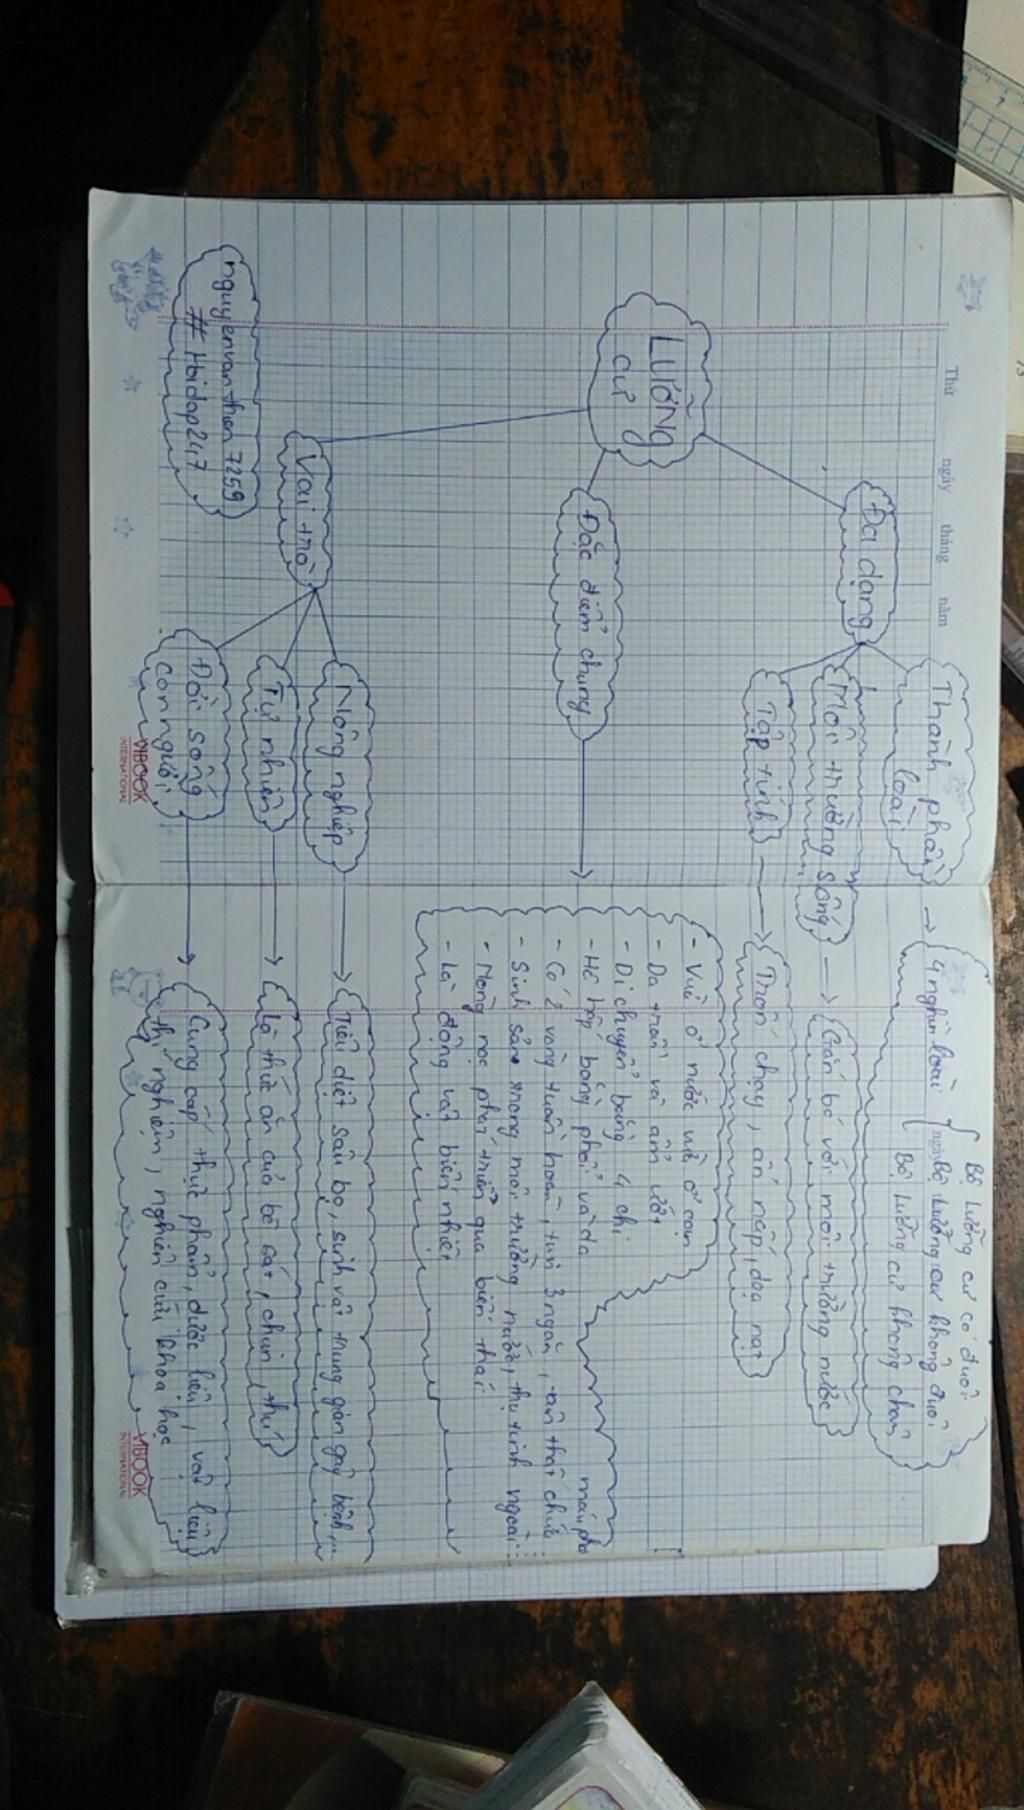 Thứ ngày tháng năm
Lưỡng
cư
Đa dạng
Thành phần
loài
4 nghìn loài
Bộ Lưỡng cư có đuôi
Bộ Lưỡng cư không đuôi
Bộ Lưỡng cư không chân
Môi trường sống
Gắn bó với môi trường nước
Tập tính
Trốn chạy, ẩn nấp, doạ nạt
Đặc điểm chung
- Vừa ở nước vừa ở cạn
- Da trần và ẩm ướt
- Di chuyển bằng 4 chi
- Hô hấp bằng phổi và da
- Có 2 vòng tuần hoàn, tim 3 ngăn, tâm thất chứa máu pha
- Sinh sản trong môi trường nước, thụ tinh ngoài
- Nòng nọc phát triển qua biến thái
- Là động vật biến nhiệt
Vai trò
Nông nghiệp
Tiêu diệt sâu bọ, sinh vật trung gian gây bệnh,...
Tự nhiên
Là thức ăn của bò sát, chim, thú
Đời sống
con người
Cung cấp thực phẩm, dược liệu, vật liệu
thí nghiệm, nghiên cứu khoa học
nguyenvanthen7259
#Hoidap247
VIBOOK
INTERNATIONAL
VIBOOK
INTERNATIONAL